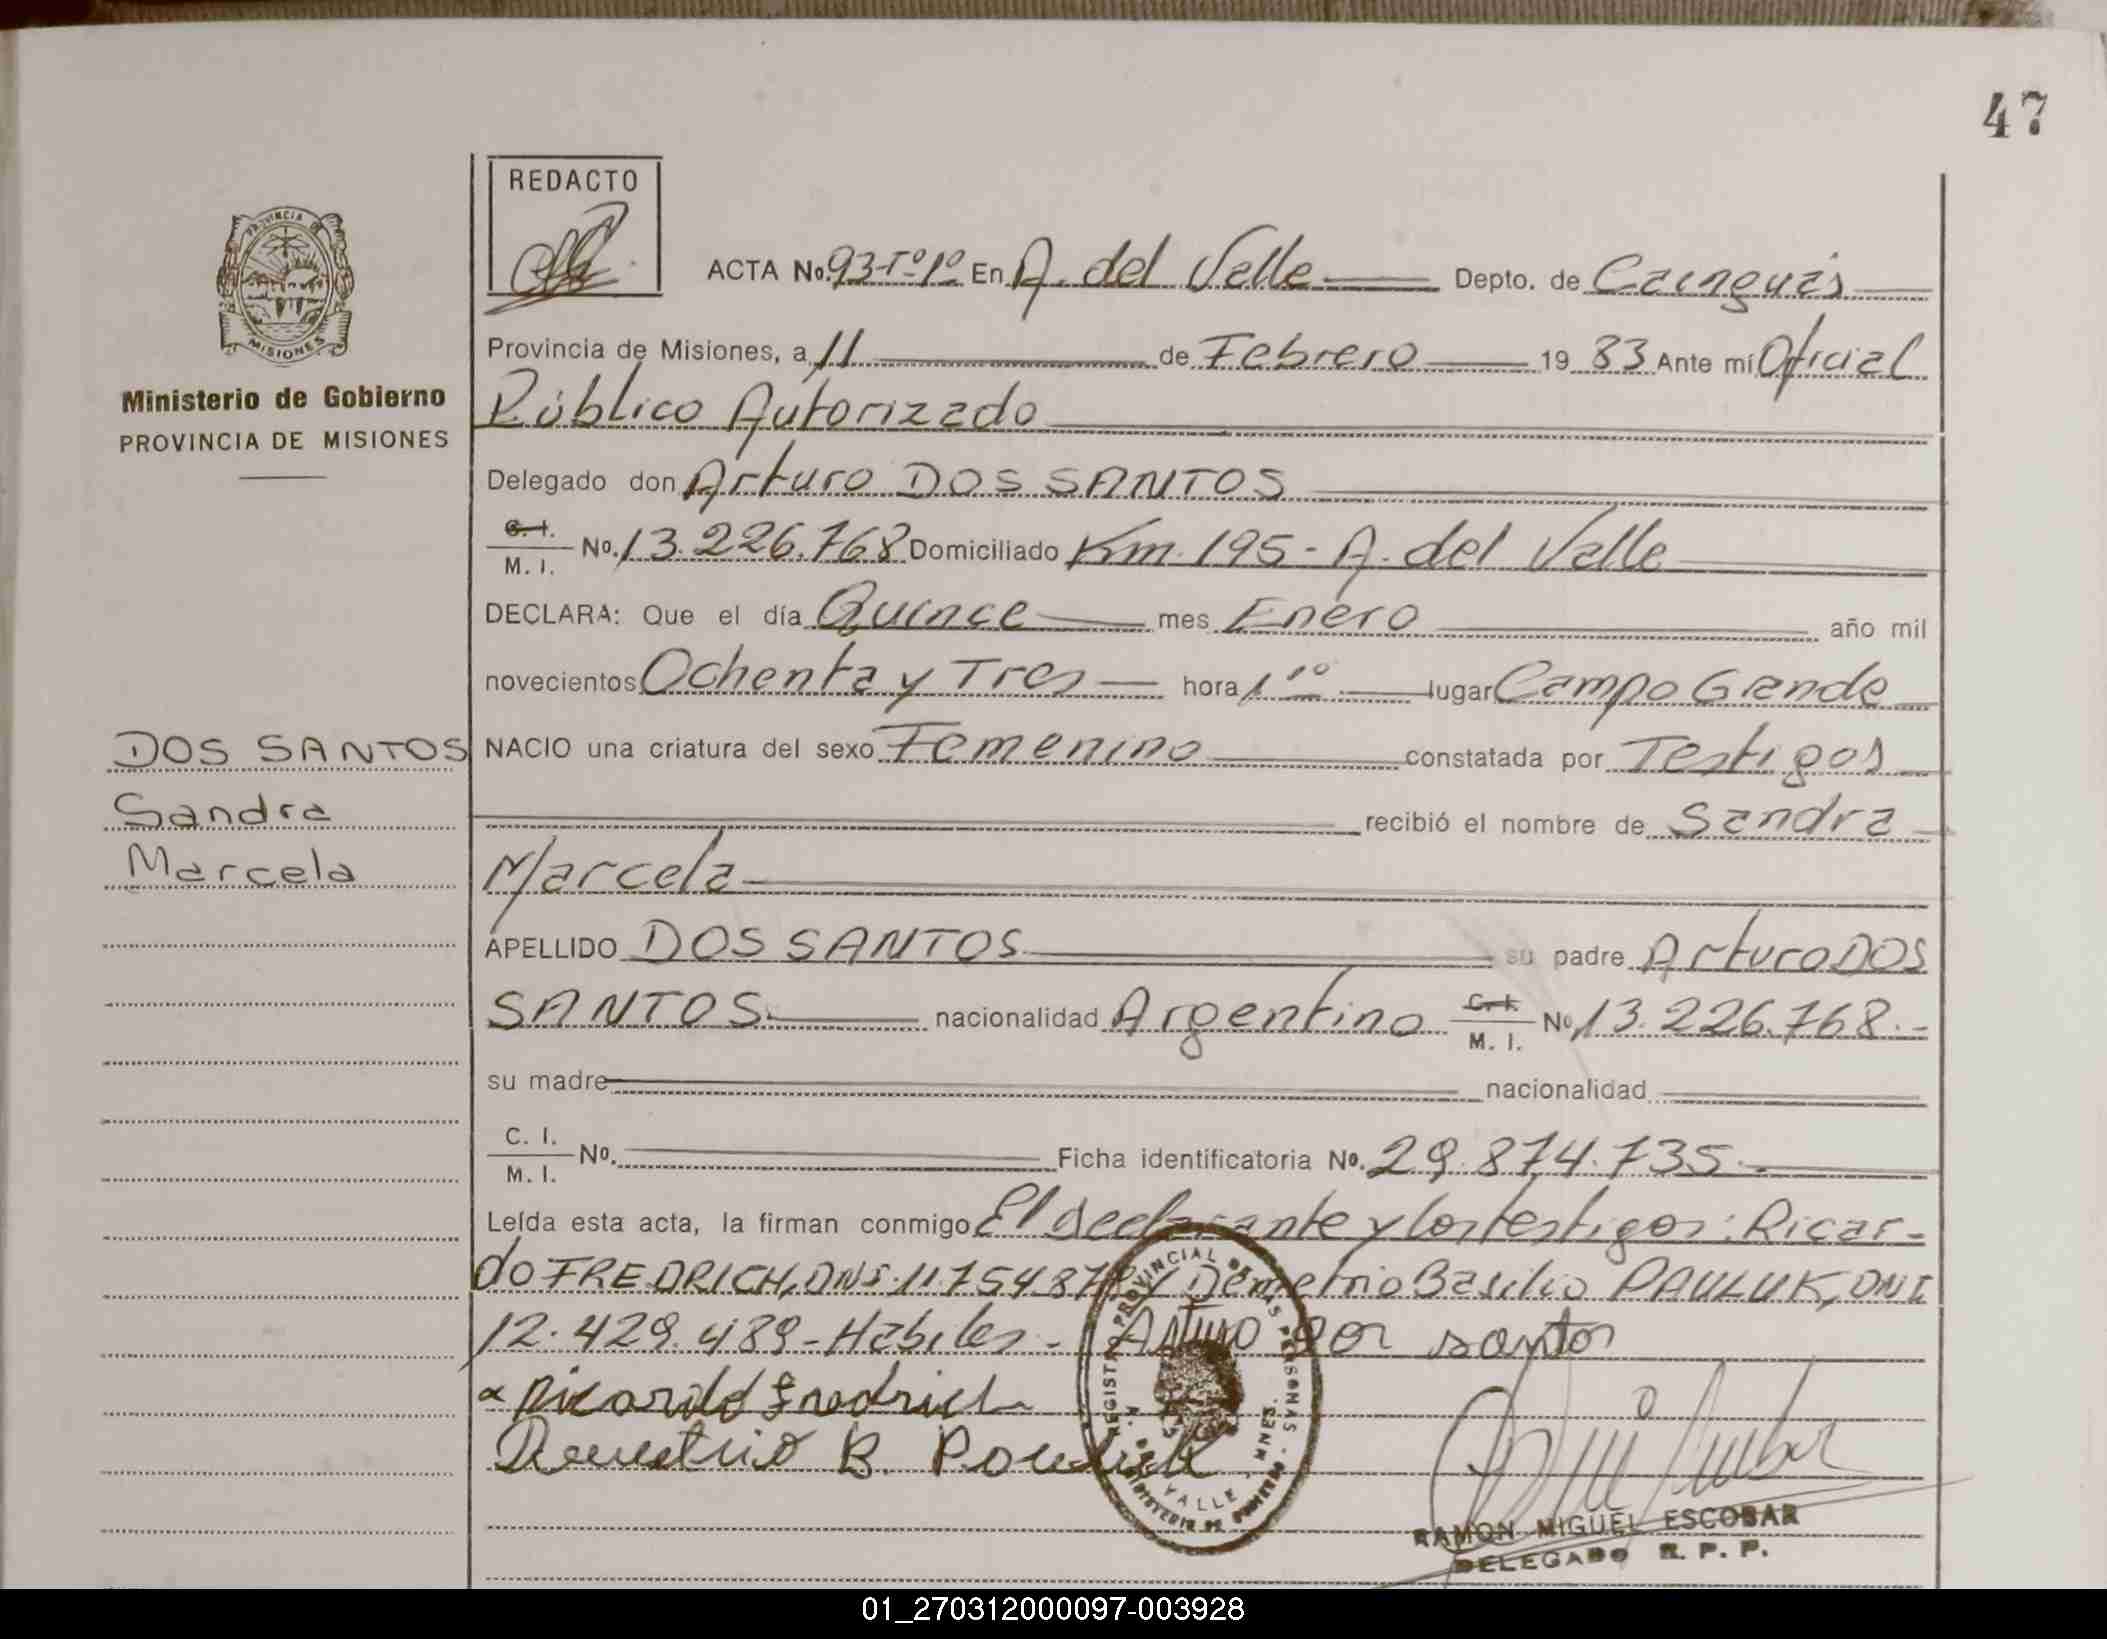 47
REDACTO
PROVINCIA DE
MISIONES
Ministerio de Gobierno
PROVINCIA DE MISIONES
ACTA No. 93-Tº1º En A. del Valle Depto. de Cainguás
Provincia de Misiones, a 11 de Febrero 19 83 Ante mí Oficial
Público Autorizado
Delegado don Arturo DOS SANTOS
C. I. / M. I. Nº. 13.226.768 Domiciliado Km. 195 - A. del Valle
DECLARA: Que el día Quince mes Enero año mil
novecientos Ochenta y Tres hora 1 10 lugar Campo Grande
DOS SANTOS
Sandra
Marcela
NACIO una criatura del sexo Femenino constatada por Testigos
recibió el nombre de Sandra
Marcela
APELLIDO DOS SANTOS su padre Arturo DOS
SANTOS nacionalidad Argentino C. I. / M. I. Nº 13.226.768.-
su madre nacionalidad
C. I. / M. I. Nº. Ficha identificatoria Nº. 29.874.735.-
Leída esta acta, la firman conmigo El declarante y los testigos: Ricar-
do FREDRICH, DNI. 11.754.87 y Demetrio Basilio PAULUK, DNI
12.429.489 - Hábiles.- Arturo dos santos
Ricardo Fredrich
Demetrio B. Pauluk
REGISTRO PROVINCIAL DE LAS PERSONAS
A. DEL VALLE - MNES.
MINISTERIO DE GOBIERNO
RAMON MIGUEL ESCOBAR
DELEGADO R. P. P.
01_270312000097-003928